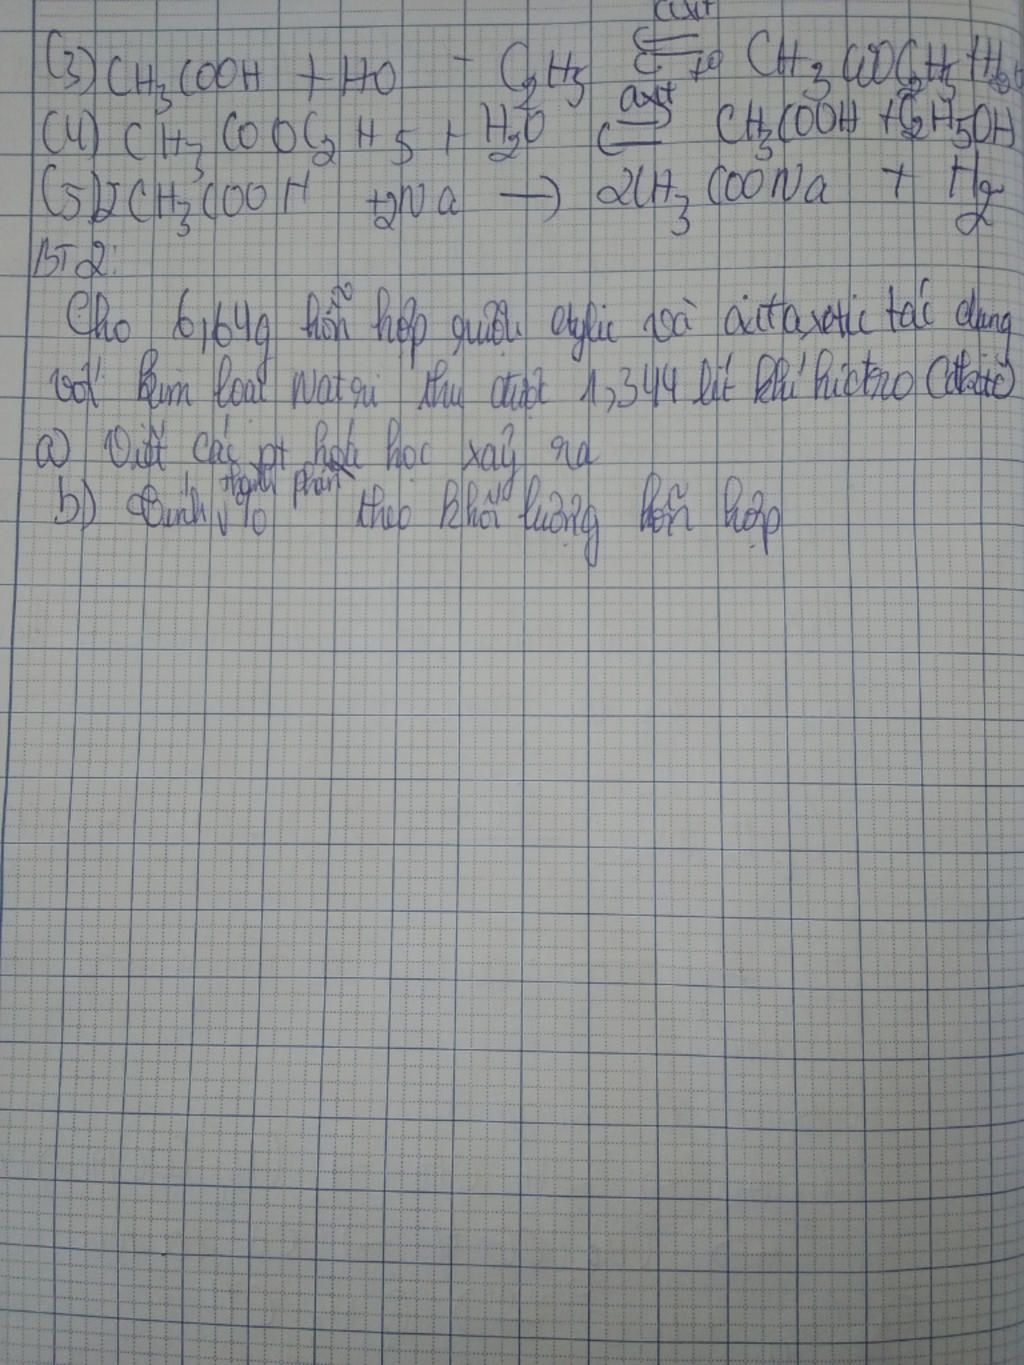 axit
(3) CH3COOH + HO - C2H5 ⇌ to CH3COOC2H5 + H2O
axit
(4) CH3COOC2H5 + H2O ⇌ CH3COOH + C2H5OH
(5) 2CH3COOH + 2Na → 2CH3COONa + H2
BT2:
Cho 6,64g hỗn hợp rượu etylic và axit axetic tác dụng
với kim loại Natri thu được 1,344 lít khí hiđro (đktc)
a) Viết các pt hoá học xảy ra
thành phần
b) Tính % theo khối lượng hỗn hợp